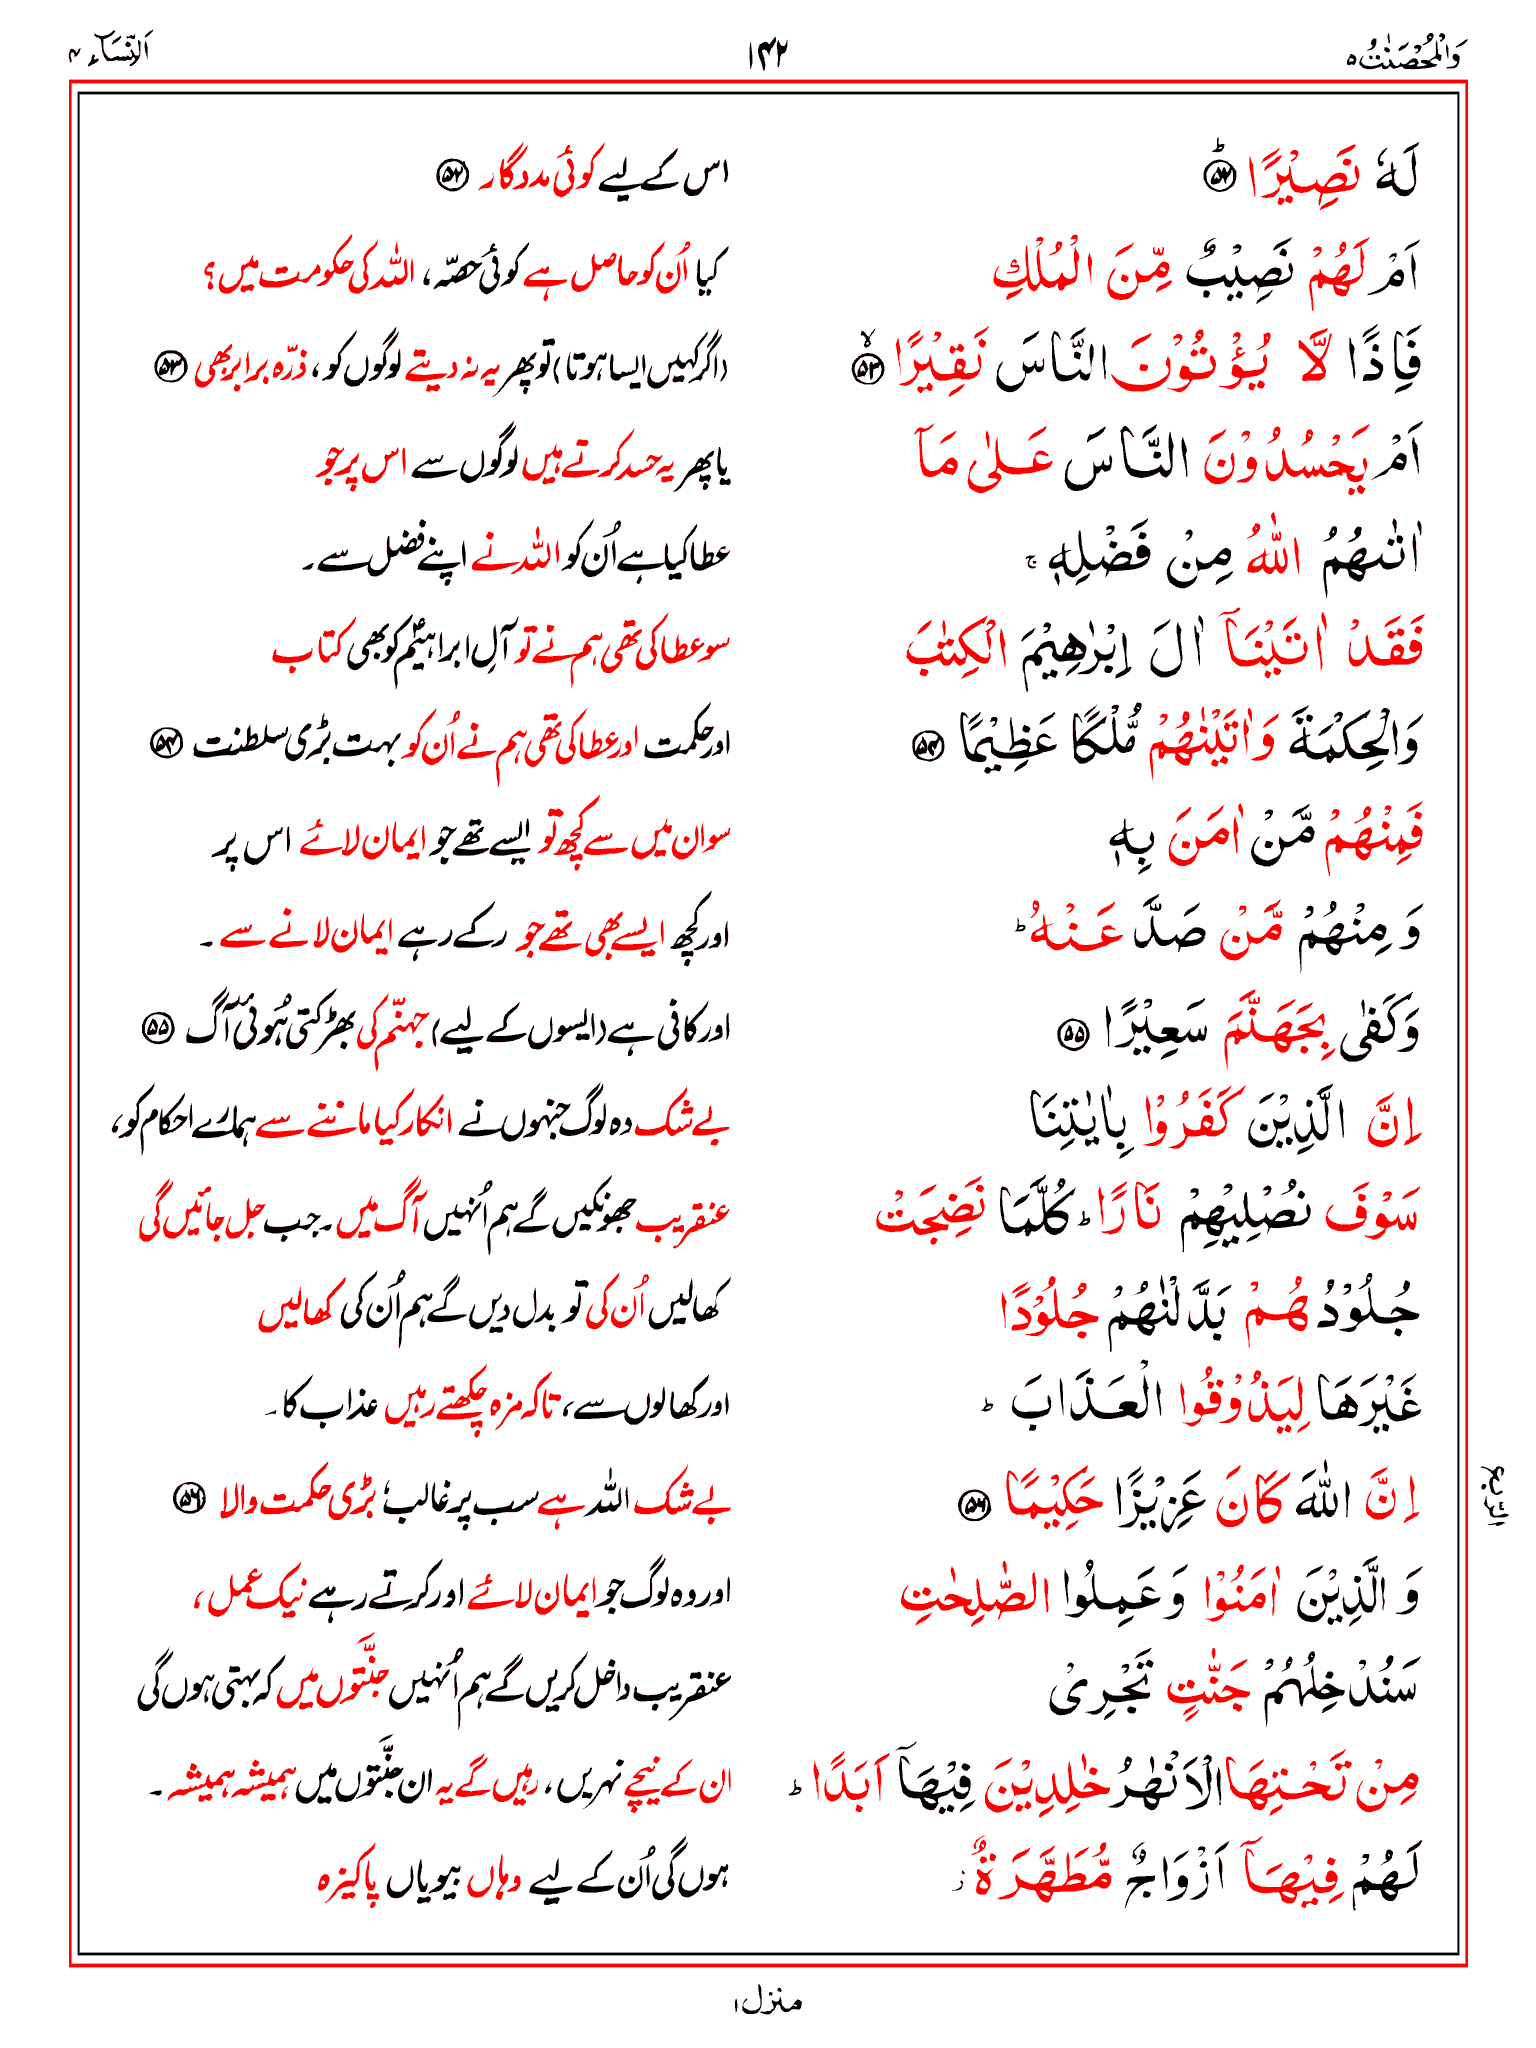 وَالْمُحْصَنٰتُ ۵
۱۴۲
اَلنِّسَآء ۴
لَهٗ نَصِيْرًا ؕ ﴿۵۲﴾
اس کے لیے کوئی مددگار ﴿۵۲﴾
اَمْ لَهُمْ نَصِيْبٌ مِّنَ الْمُلْكِ
کیا اُن کو حاصل ہے کوئی حصّہ، اللہ کی حکومت میں؟
فَاِذًا لَّا يُؤْتُوْنَ النَّاسَ نَقِيْرًا ۙ ﴿۵۳﴾
(اگر کہیں ایسا ہوتا) تو پھر یہ نہ دیتے لوگوں کو، ذرّہ برابر بھی ﴿۵۳﴾
اَمْ يَحْسُدُوْنَ النَّاسَ عَلٰى مَآ
یا پھر یہ حسد کرتے ہیں لوگوں سے اس پر جو
اٰتٰىهُمُ اللّٰهُ مِنْ فَضْلِهٖ ۚ
عطا کیا ہے اُن کو اللہ نے اپنے فضل سے۔
فَقَدْ اٰتَيْنَآ اٰلَ اِبْرٰهِيْمَ الْكِتٰبَ
سو عطا کی تھی ہم نے تو آلِ ابراہیمؑ کو بھی کتاب
وَالْحِكْمَةَ وَاٰتَيْنٰهُمْ مُّلْكًا عَظِيْمًا ﴿۵۴﴾
اور حکمت اور عطا کی تھی ہم نے اُن کو بہت بڑی سلطنت ﴿۵۴﴾
فَمِنْهُمْ مَّنْ اٰمَنَ بِهٖ
سو ان میں سے کچھ تو ایسے تھے جو ایمان لائے اس پر
وَ مِنْهُمْ مَّنْ صَدَّ عَنْهُ ؕ
اور کچھ ایسے بھی تھے جو رکے رہے ایمان لانے سے ۔
وَكَفٰى بِجَهَنَّمَ سَعِيْرًا ﴿۵۵﴾
اور کافی ہے (ایسوں کے لیے) جہنّم کی بھڑکتی ہُوئی آگ ﴿۵۵﴾
اِنَّ الَّذِيْنَ كَفَرُوْا بِاٰيٰتِنَا
بے شک وہ لوگ جنہوں نے انکار کیا ماننے سے ہمارے احکام کو،
سَوْفَ نُصْلِيْهِمْ نَارًا ؕ كُلَّمَا نَضِجَتْ
عنقریب جھونکیں گے ہم اُنہیں آگ میں۔ جب جل جائیں گی
جُلُوْدُهُمْ بَدَّلْنٰهُمْ جُلُوْدًا
کھالیں اُن کی تو بدل دیں گے ہم اُن کی کھالیں
غَيْرَهَا لِيَذُوْقُوا الْعَذَابَ ؕ
اور کھالوں سے، تاکہ مزہ چکھتے رہیں عذاب کا۔
اِنَّ اللّٰهَ كَانَ عَزِيْزًا حَكِيْمًا ﴿۵۶﴾
بے شک اللہ ہے سب پر غالب، بڑی حکمت والا ﴿۵۶﴾
الرّبع
وَ الَّذِيْنَ اٰمَنُوْا وَ عَمِلُوا الصّٰلِحٰتِ
اور وہ لوگ جو ایمان لائے اور کرتے رہے نیک عمل،
سَنُدْخِلُهُمْ جَنّٰتٍ تَجْرِىْ
عنقریب داخل کریں گے ہم اُنہیں جنَّتوں میں کہ بہتی ہوں گی
مِنْ تَحْتِهَا الْاَنْهٰرُ خٰلِدِيْنَ فِيْهَآ اَبَدًا ؕ
ان کے نیچے نہریں، رہیں گے یہ ان جنَّتوں میں ہمیشہ ہمیشہ ۔
لَهُمْ فِيْهَآ اَزْوَاجٌ مُّطَهَّرَةٌ ز
ہوں گی اُن کے لیے وہاں بیویاں پاکیزہ
منزل ۱